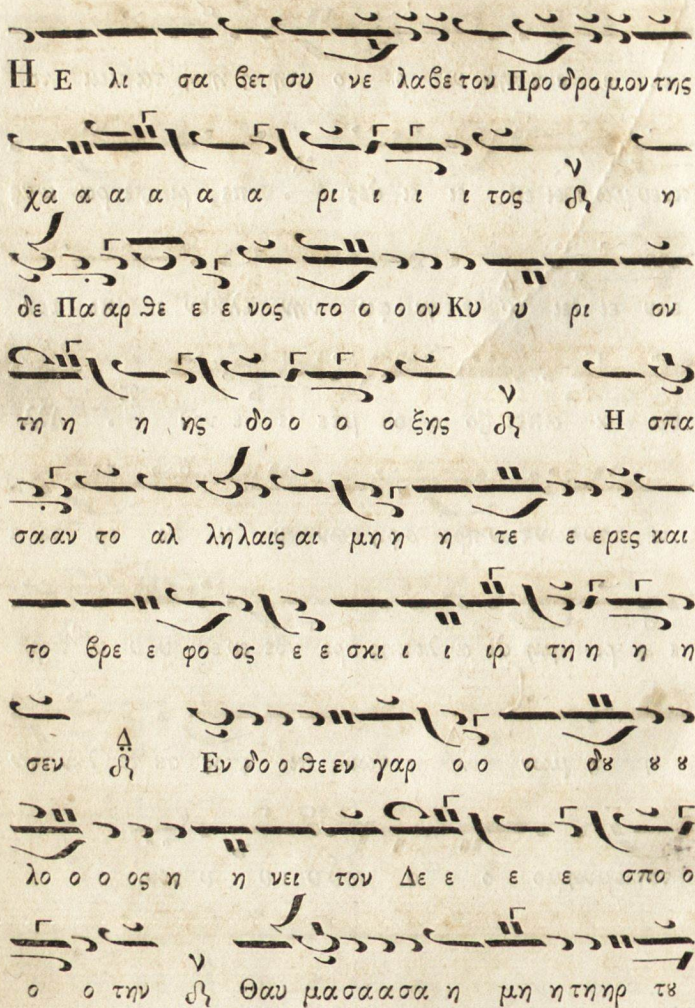 Η Ε λι σα βετ συ νε λαβετον Προ δρο μον της
χα α α α α α ρι ι ι ι τος ν η
δε Πα αρ θε ε ε νος το ο ο ον Κυ υ ρι ον
τη η η ης δο ο ο ο ξης ν Η σπα
σα αν το αλ ληλαις αι μη η η τε ε ερες και
το βρε ε φο ος ε ε σκι ι ι ιρ τη η η η
σεν Δ Εν δο ο θε εν γαρ ο ο ο δȣ ȣ ȣ
λο ο ο ος η η νει τον Δε ε ε ε σπο ο
ο ο την ν Θαυ μα σα α σα η μη η τη ηρ τȣ